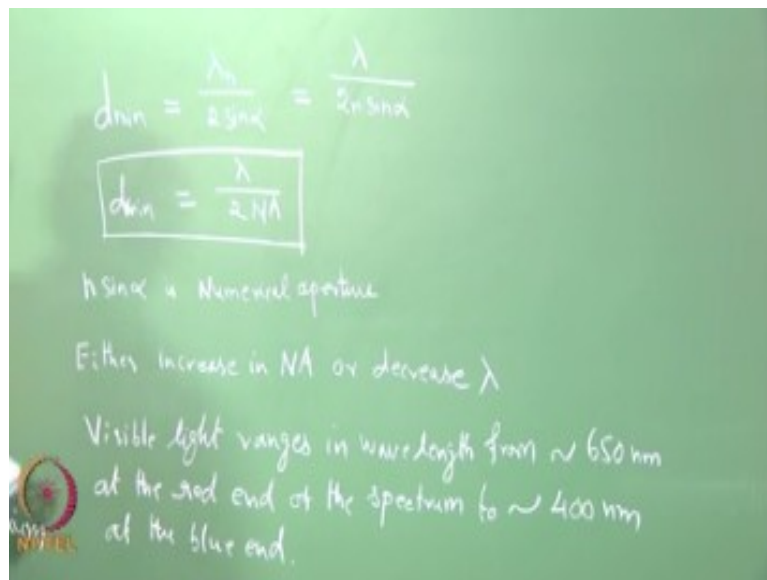 dmin = λn / 2 sinα = λ / 2n sinα
dmin = λ / 2 NA
n sinα is Numerical aperture
Either increase in NA or decrease λ
Visible light ranges in wavelength from ~ 650 nm
at the red end of the spectrum to ~ 400 nm
at the blue end.
NPTEL